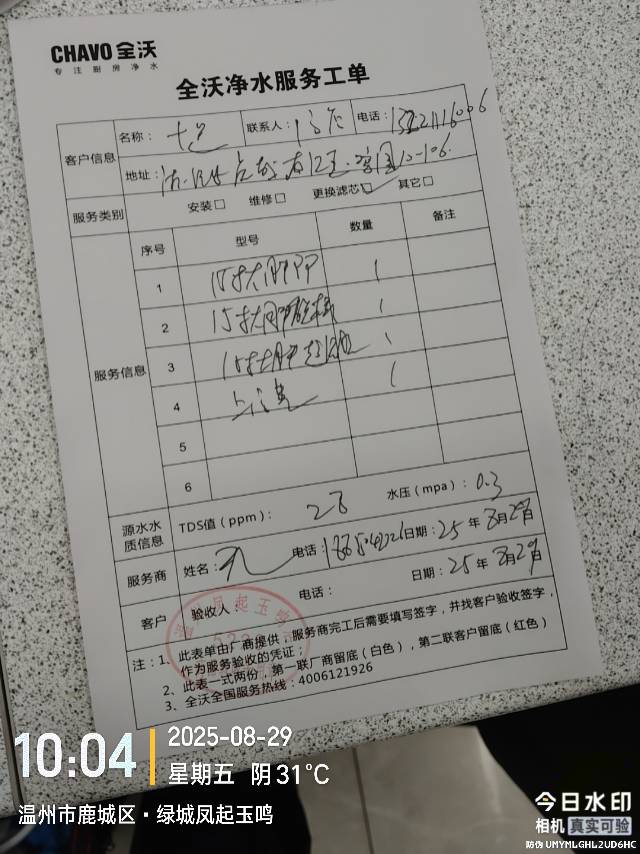 CHAVO 全沃
专注厨房净水
全沃净水服务工单
客户信息
名称：
联系人：
电话：
地址： 10-106
服务类别
安装□ 维修□ 更换滤芯□ 其它□
服务信息
序号 型号 数量 备注
1 15寸大胖PP 1
2 15寸大胖 1
3 15寸大胖 1
4 1
5
6
源水水质信息
TDS值（ppm）： 28 水压（mpa）： 0.3
服务商
姓名： 孔 电话： 日期：25年8月29日
客户
验收人： 电话： 日期：25年8月29日
注：1、此表单由厂商提供，服务商完工后需要填写签字，并找客户验收签字，
作为服务验收的凭证；
2、此表一式两份，第一联厂商留底（白色），第二联客户留底（红色）
3、全沃全国服务热线：4006121926
凤起玉鸣
10:04
2025-08-29
星期五 阴 31℃
温州市鹿城区·绿城凤起玉鸣
今日水印
相机 真实可验
防伪 UMYMLGHL2UD6HC